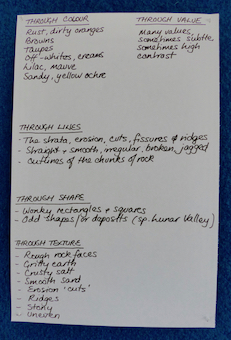 THROUGH COLOUR
Rust, dirty oranges
Browns
Taupes
Off-whites, creams
Lilac, mauve
Sandy, yellow ochre
THROUGH VALUE
Many values,
sometimes subtle,
sometimes high
contrast
THROUGH LINES
- The strata, erosion, cuts, fissures & ridges
- Straight & smooth, irregular, broken, jagged
- Outlines of the chunks of rock
THROUGH SHAPE
- Wonky rectangles & squares
- Odd shapes/or deposits (sp. Lunar Valley)
THROUGH TEXTURE
- Rough rock faces
- Gritty earth
- Crusty salt
- Smooth sand
- Erosion 'cuts'
- Ridges
- Stony
- Uneven